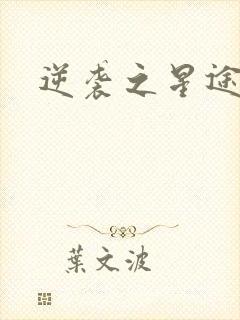 逆袭之星途
葉文波